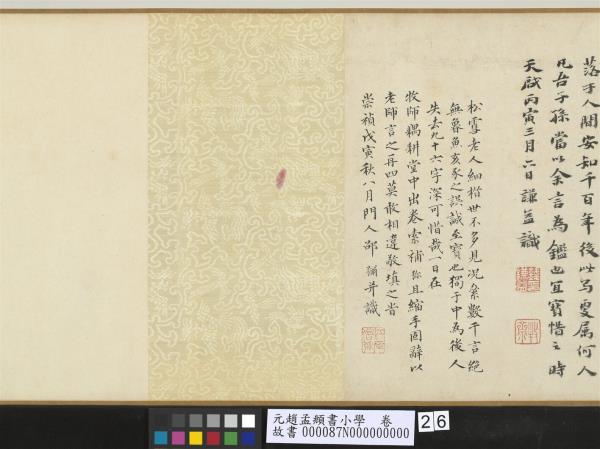 落于人間安知千百年後此寫更屬何人
凡吾子孫當以余言為鑑也宜寶惜之時
天啟丙寅三月六日謙益識
松雪老人細楷世不多見況纍數千言絕
無魯魚亥豕之誤誠至寶也獨于中為後人
失去九十六字深可惜哉一日在
牧師耦耕堂中出卷索補彌且縮手固辭以
老師言之再四莫敢相違敬填之旹
崇禎戊寅秋八月門人邵彌并識
元趙孟頫書小學 卷
故書 000087N000000000
26